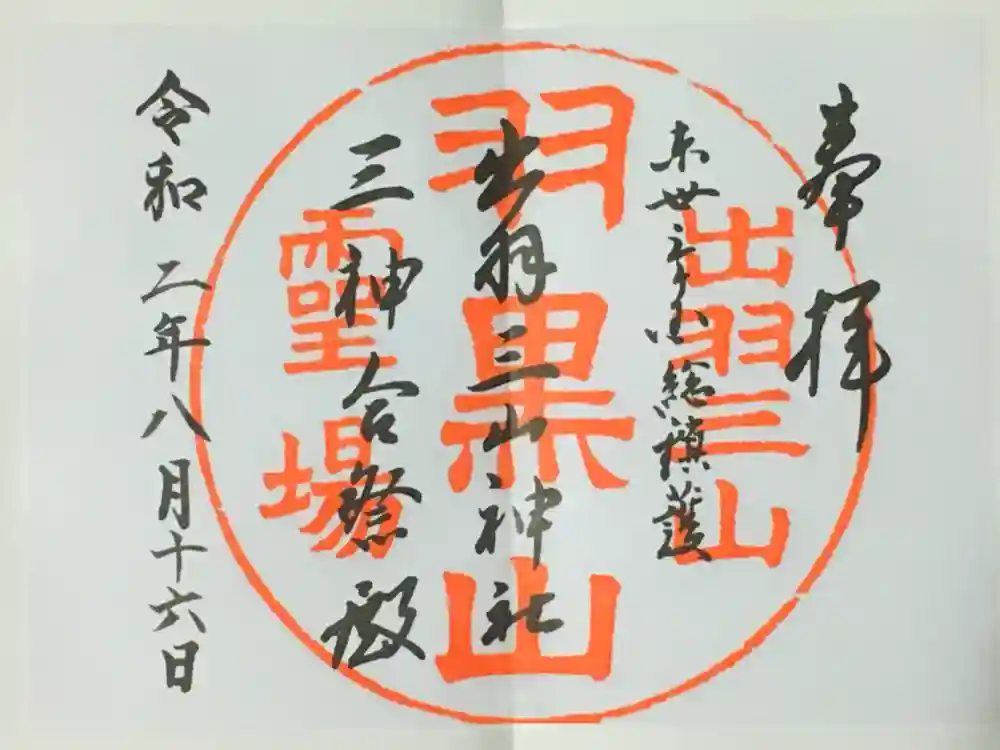 奉拝
東丗三ヶ国総鎮護
出羽三山神社
三神合祭殿
令和二年八月十六日
出羽三山
羽黒山
霊場